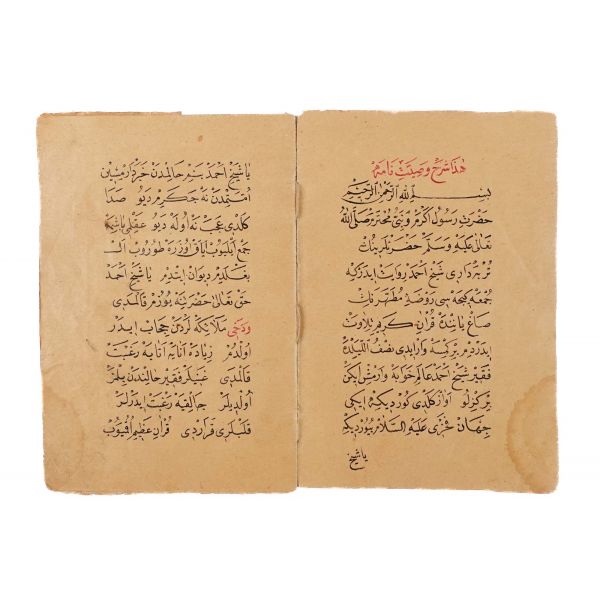 هذا شرح وصيت نامه
بسم الله الرحمن الرحيم
حضرت رسول اكرم ونبئ محترم صلى الله
تعالى عليه وسلم حضرتلرينك
تربه دارى شيخ احمد روايت ايدركه
جمعه كيجه سى روضه مطهره نك
صاغ ياننده قرآن كريم تلاوت
ايدردم بركيسه وارايدى نصف الليلده
فقير شيخ احمد عالم خوابه وارمش ايكن
بركزلو آواز كلدى كوردمكه ايكى
جهان فخرى عليه السلام بيورديكه
يا شيخ
يا شيخ احمد بنم حالمدن خبردارميسين
امتمدن نه چكرم ديو صدا
كلدى عجب نه اوله ديو عقلمى باشمه
جمع ايليوب اياق اوزره طوروب ال
بغلديم ديوان ايتدم يا شيخ احمد
حق تعالى حضرتنه يوزم قالمدى
ودخى ملائكه لردن حجاب ايدر
اولدم زياده اتايه انايه رغبت
قالمدى غنيلر فقير حالندن بيلمز
اولديلر چالقيه رغبت ايدرلر
قلبلرى قراردى قرآن عظيم اوقيوب